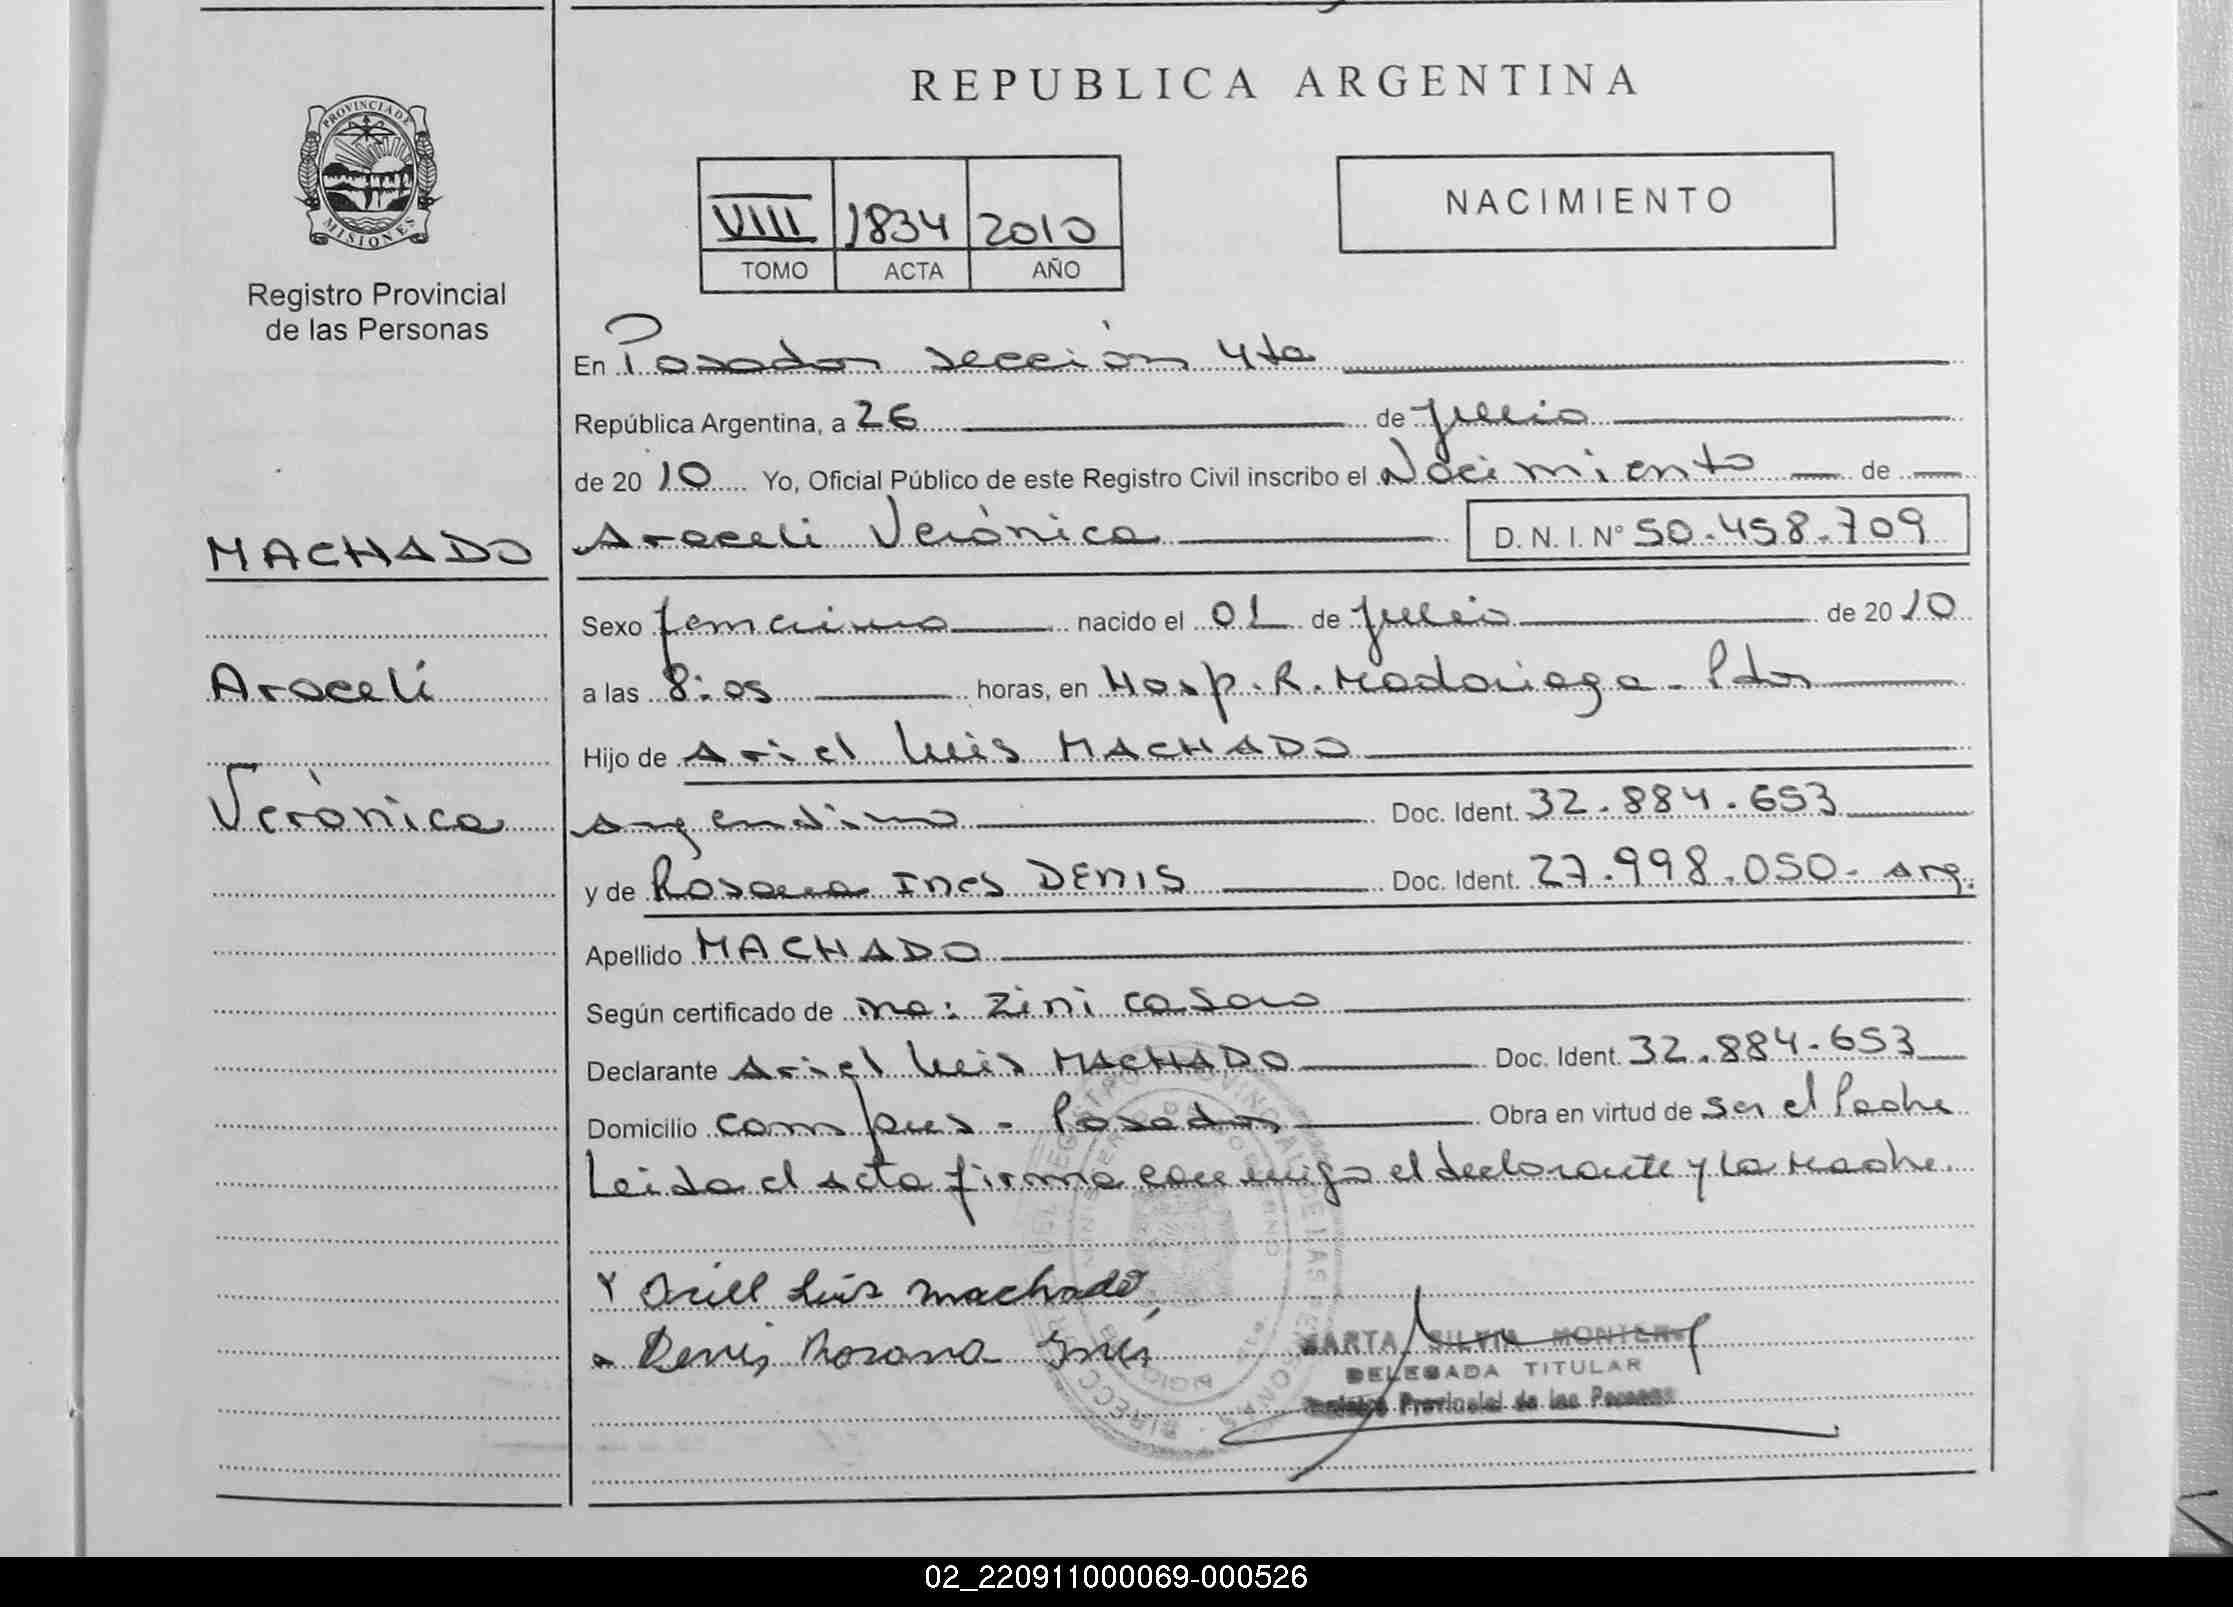 REPUBLICA ARGENTINA
PROVINCIA DE
MISIONES
Registro Provincial
de las Personas
VIII 1834 2010
TOMO ACTA AÑO
NACIMIENTO
En Posadas sección 4ta
República Argentina, a 26 de julio
de 2010 Yo, Oficial Público de este Registro Civil inscribo el Nacimiento de
MACHADO
Araceli Verónica D. N. I. N° 50.458.709
Sexo femenino nacido el 01 de julio de 2010
Araceli
a las 8:05 horas, en Hosp. R. Madariaga - Pdas
Hijo de Ariel Luis MACHADO
Verónica
Argentino Doc. Ident. 32.884.653
y de Rosana Ines DENIS Doc. Ident. 27.998.050- Arg.
Apellido MACHADO
Según certificado de Zini
Declarante Ariel Luis MACHADO Doc. Ident. 32.884.653
Domicilio Campus - Posadas Obra en virtud de ser el Padre
Leida el acta firma conmigo el declarante y la Madre.
Luis Machado
Denis Rosana Inés
MARTA SILVIA
DELEGADA TITULAR
Registro Provincial de las Personas
02_220911000069-000526